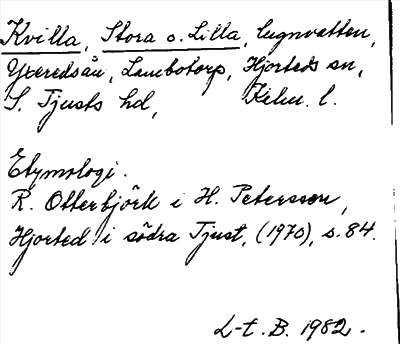 Kvilla, Stora o. Lilla, lugnvatten,
Yxeredsån, Lambotorp, Hjorteds sn,
S. Tjusts hd, Kalm. l.
Etymologi.
R. Otterbjörk i H. Petersson,
Hjorted i södra Tjust, (1970), s. 84.
L-t. B. 1982.